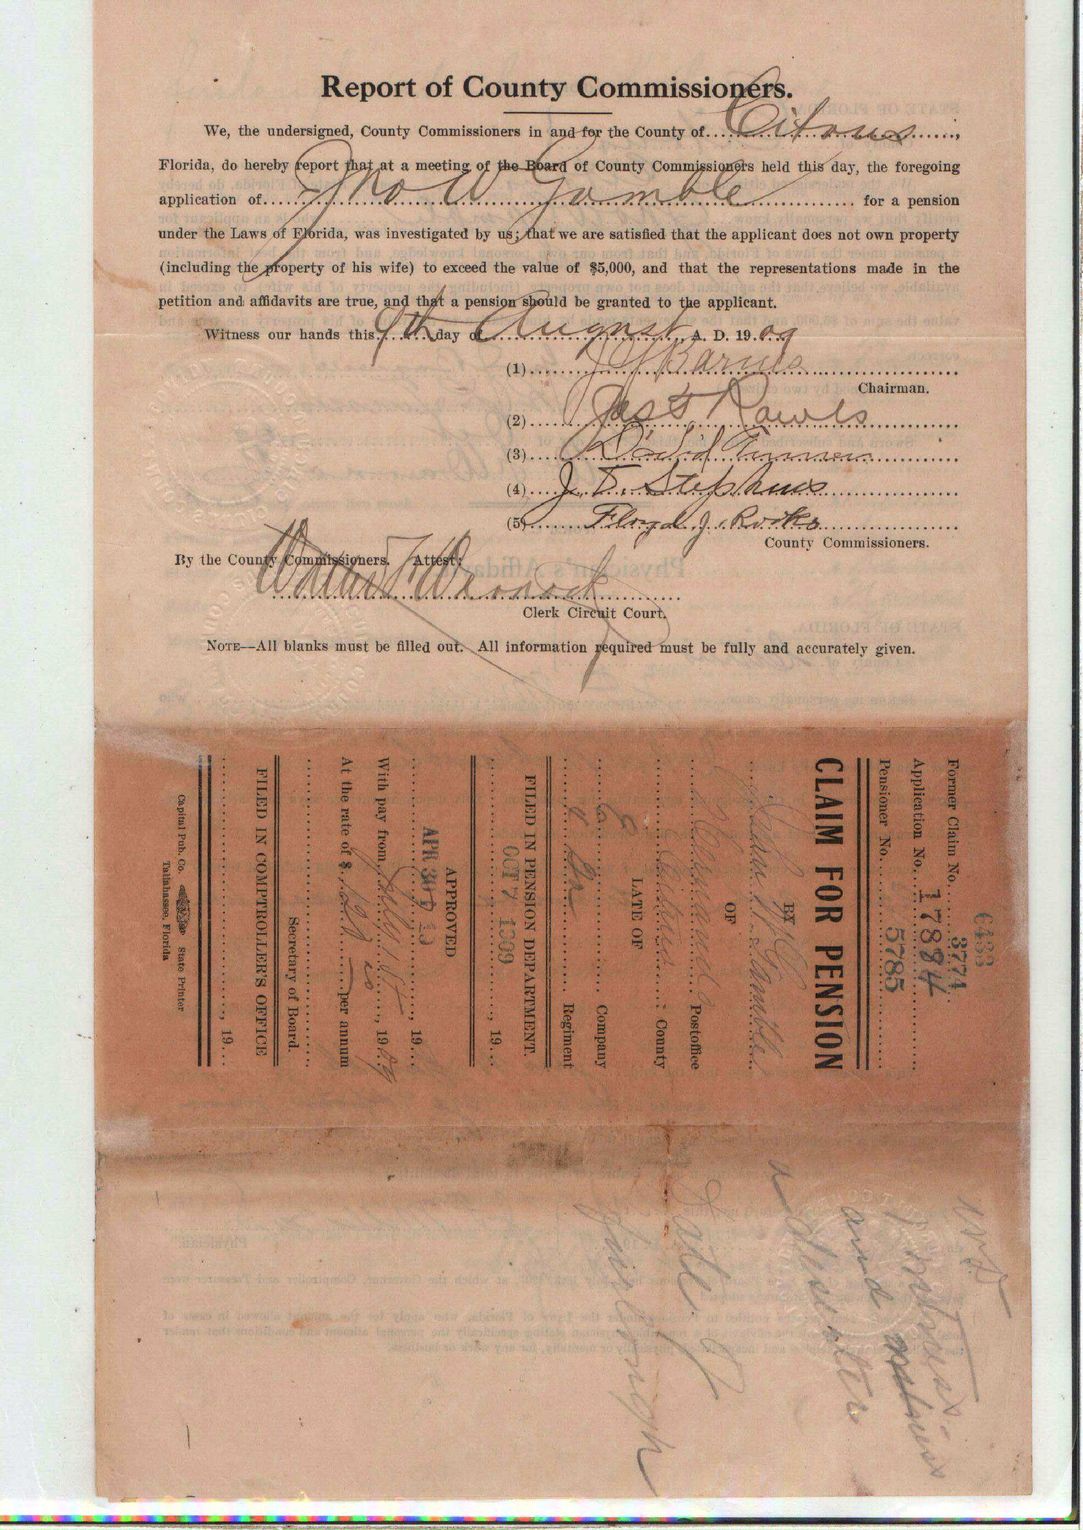 Report of County Commissioners.
We, the undersigned, County Commissioners in and for the County of Citrus,
Florida, do hereby report that at a meeting of the Board of County Commissioners held this day, the foregoing
application of Jno W Gamble for a pension
under the Laws of Florida, was investigated by us; that we are satisfied that the applicant does not own property
(including the property of his wife) to exceed the value of $5,000, and that the representations made in the
petition and affidavits are true, and that a pension should be granted to the applicant.
Witness our hands this 9th day of August A. D. 1909
(1) Barnes
Chairman.
(2) Jas T Rawls
(3)
(4) J. T. Stephens
(5) Floyd J. Rooks
County Commissioners.
By the County Commissioners. Attest:
Walter F Warnock
Clerk Circuit Court.
NOTE—All blanks must be filled out. All information required must be fully and accurately given.
6433
Former Claim No. 3774
Application No. 17884
Pensioner No. 5785
CLAIM FOR PENSION
BY
John W. Gamble
OF
Hernando Postoffice
Citrus County
LATE OF
Company
Regiment
FILED IN PENSION DEPARTMENT.
OCT 7 1909, 19
APPROVED
APR 30, 19
With pay from July, 1909
At the rate of $ per annum
Secretary of Board.
FILED IN COMPTROLLER'S OFFICE
, 19
Capital Pub. Co. State Printer
Tallahassee, Florida
witness
and witness
a deserter
Date of
furlough